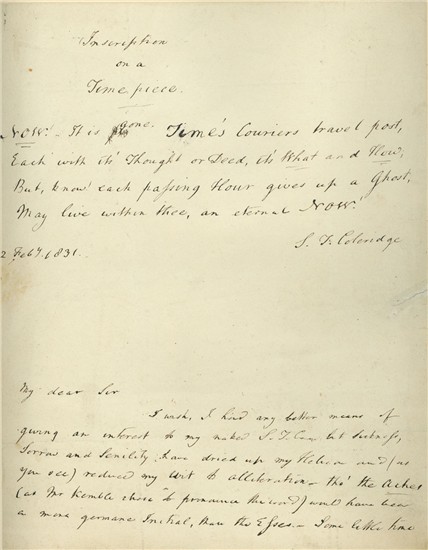 Inscription
on a
Time piece.
NOW! It is gone. Time's Couriers travel post,
Each with it's Thought or Deed, it's What and How,
But, know! each passing Hour gives up a Ghost,
May live within thee, an eternal NOW!
S. T. Coleridge
2 Feby. 1831.
My dear Sir
I wish, I had any better means of
giving an interest to my naked S. T. C. but Sickness,
Sorrow and Senility have dried up my Helicon and (as
you see) reduced my Wit to alliteration — tho' the Aches
(as Mr Kemble chose to pronounce the word) would have been
a more germane Initial, than the Esses. — Some little time